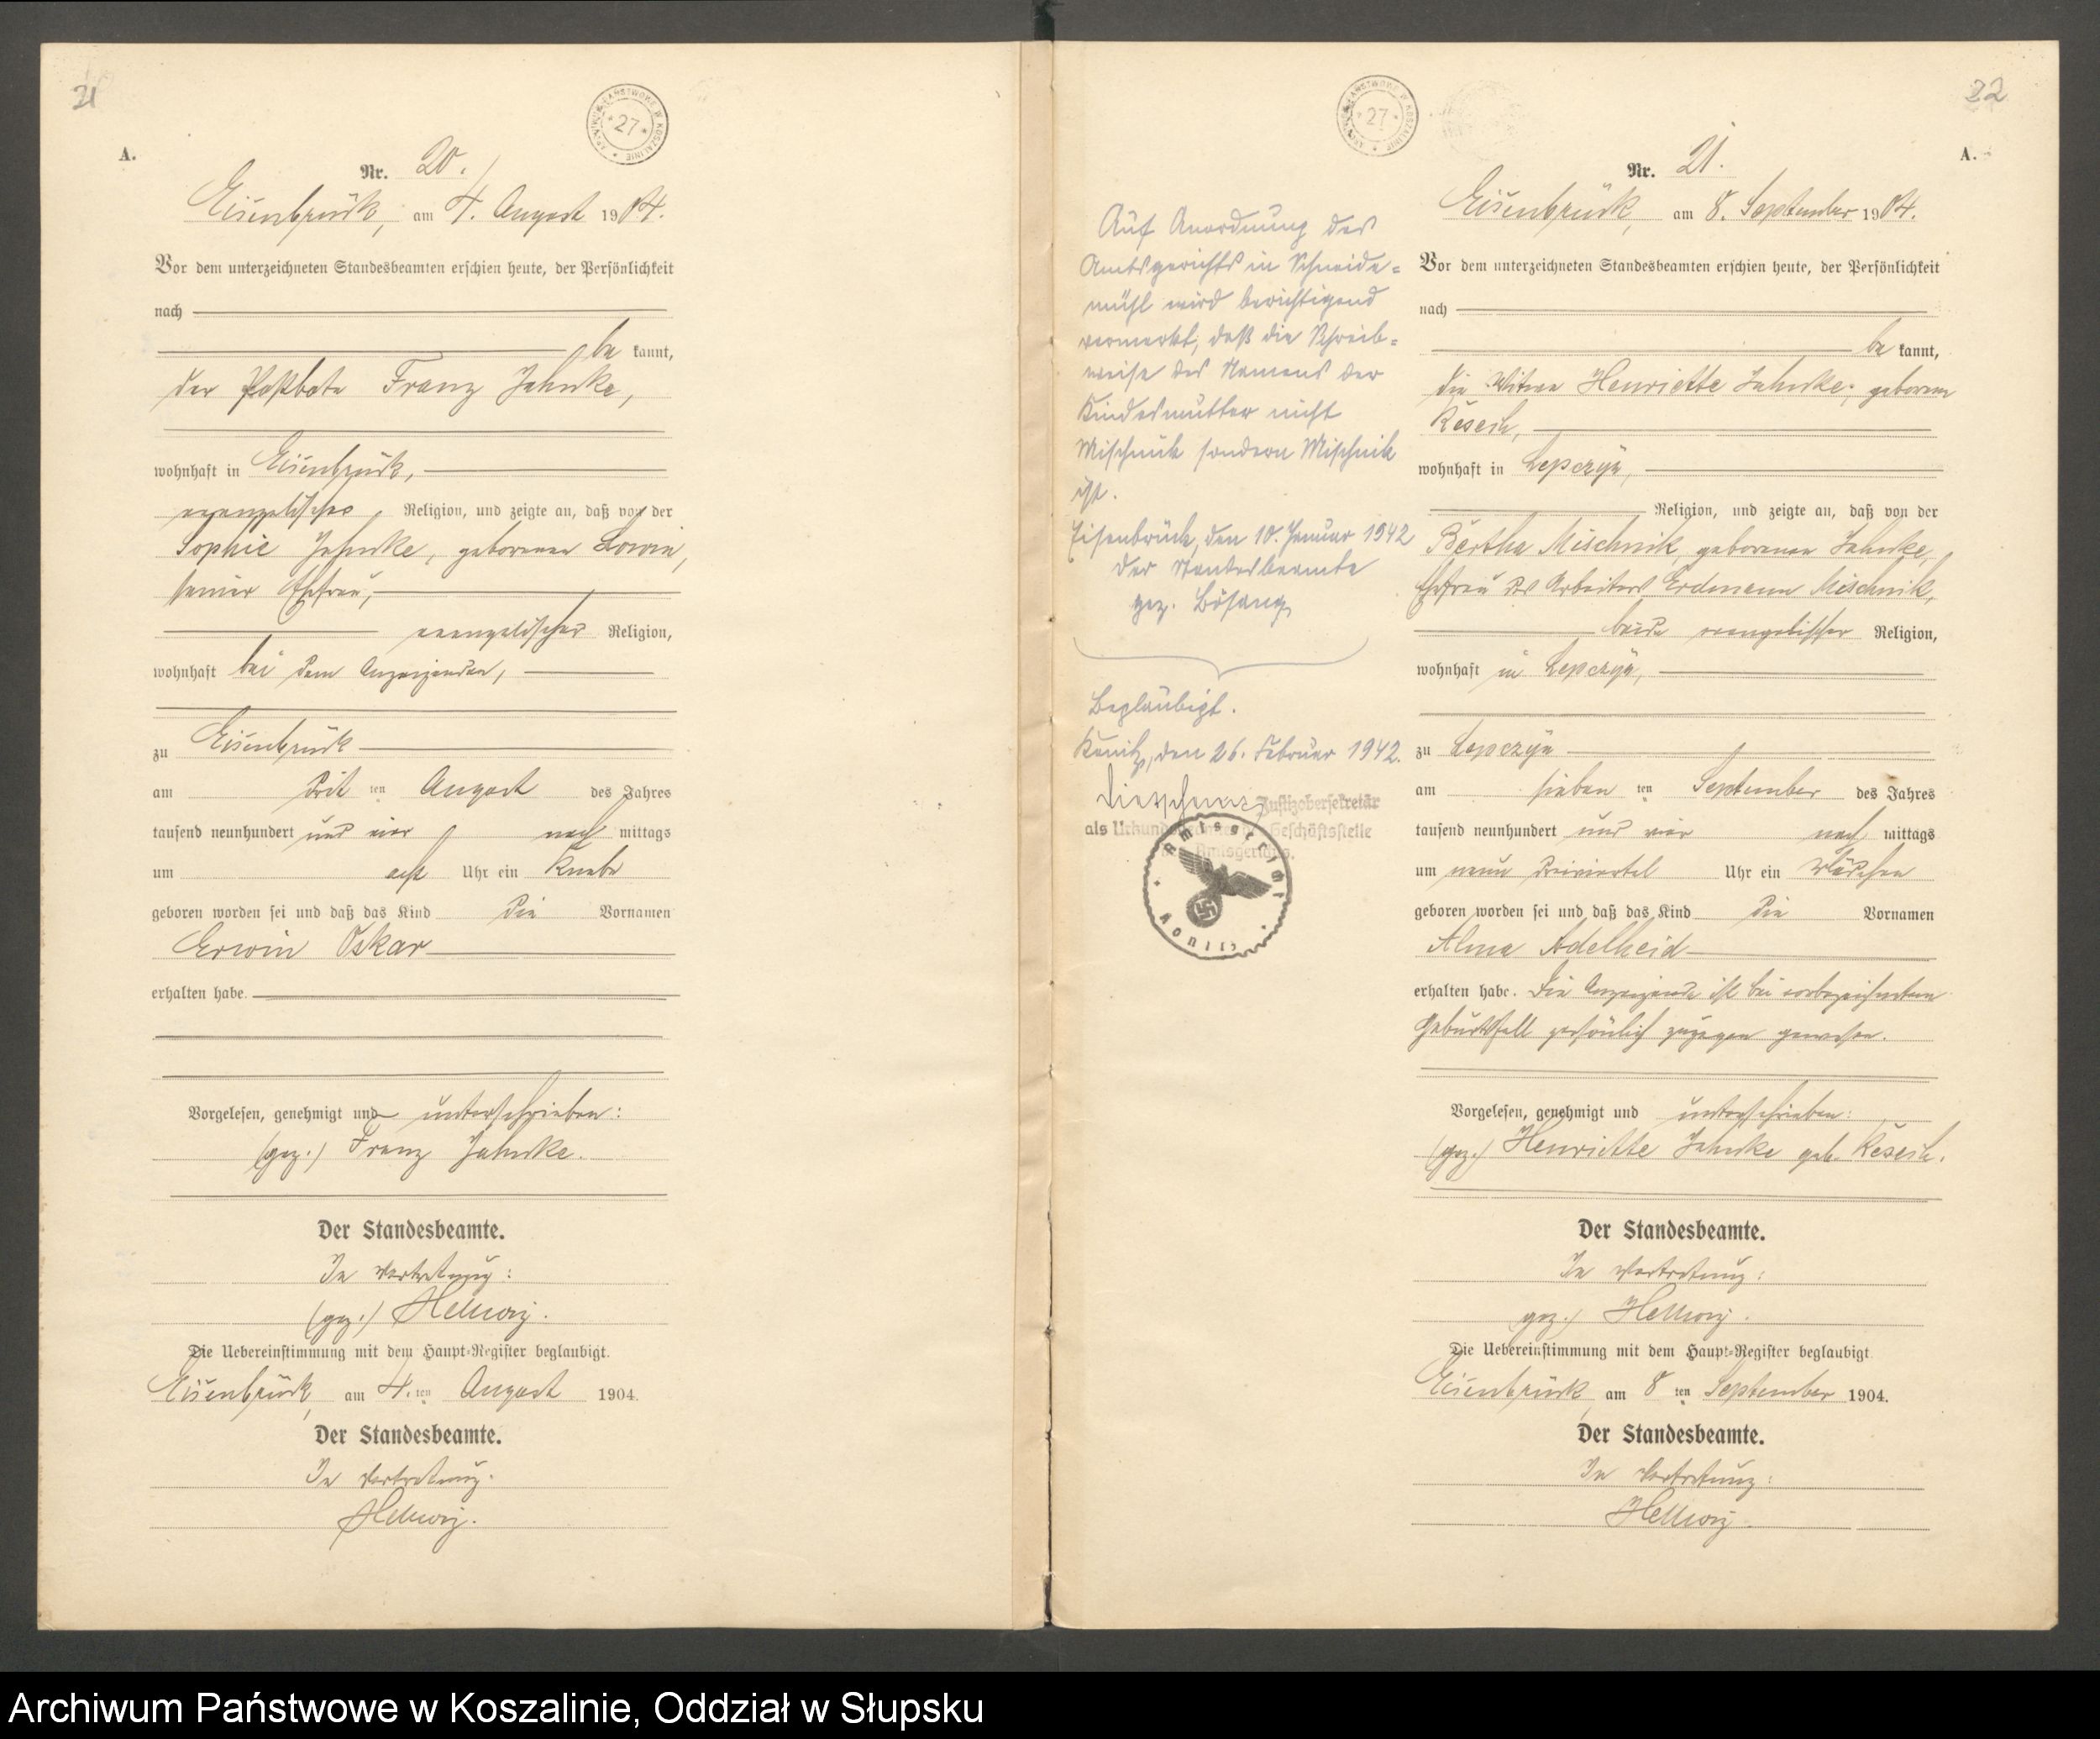 21
A.
Nr. 20.
Eisenbrück, am 4. August 1904.
Vor dem unterzeichneten Standesbeamten erschien heute, der Persönlichkeit
nach
be kannt,
der Postbote Franz Jahnke,
wohnhaft in Eisenbrück,
evangelischer Religion, und zeigte an, daß von der
Sophie Jahnke, geborenen Lowin,
seiner Ehefrau,
evangelischer Religion,
wohnhaft bei dem Anzeigenden,
zu Eisenbrück
am drit ten August des Jahres
tausend neunhundert und vier nach mittags
um acht Uhr ein Knabe
geboren worden sei und daß das Kind die Vornamen
Erwin Oskar
erhalten habe.
Vorgelesen, genehmigt und unterschrieben:
(gez.) Franz Jahnke.
Der Standesbeamte.
In Vertretung:
(gez.) Hellwig.
Die Uebereinstimmung mit dem Haupt-Register beglaubigt.
Eisenbrück, am 4. ten August 1904.
Der Standesbeamte.
In Vertretung.
Hellwig.
ARCHIWUM PAŃSTWOWE W KOSZALINIE
27
22
A.
Nr. 21.
Eisenbrück, am 8. September 1904.
Vor dem unterzeichneten Standesbeamten erschien heute, der Persönlichkeit
nach
be kannt,
die Witwe Henriette Jahnke, geborene
wohnhaft in Lepczyn,
Religion, und zeigte an, daß von der
Bertha Mischnik, geborenen Jahnke,
Ehefrau des Arbeiters Erdmann Mischnik,
beide evangelischer Religion,
wohnhaft in Lepczyn,
zu Lepczyn
am sieben ten September des Jahres
tausend neunhundert und vier nach mittags
um neun dreiviertel Uhr ein Mädchen
geboren worden sei und daß das Kind die Vornamen
Alma Adelheid
erhalten habe. Die Anzeigende ist bei vorbezeichnetem
Geburtsfall persönlich zugegen gewesen.
Vorgelesen, genehmigt und unterschrieben:
(gez.) Henriette Jahnke geb.
Der Standesbeamte.
In Vertretung:
gez.) Hellwig.
Die Uebereinstimmung mit dem Haupt-Register beglaubigt.
Eisenbrück, am 8 ten September 1904.
Der Standesbeamte.
In Vertretung:
Hellwig.
ARCHIWUM PAŃSTWOWE W KOSZALINIE
27
Auf Anordnung des
Amtsgerichts in Schneide-
mühl wird berichtigend
vermerkt, daß die Schreib-
weise des Namens der
Kindesmutter nicht
Mischnick sondern Mischnik
ist.
Eisenbrück, den 10. Januar 1942
Der Standesbeamte
gez.
Beglaubigt.
Konitz, den 26. Februar 1942.
Justizobersekretär
als Urkundsbeamter der Geschäftsstelle
des Amtsgerichts.
Amtsgericht
Konitz
Archiwum Państwowe w Koszalinie, Oddział w Słupsku